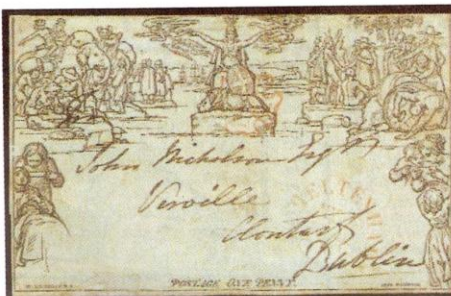 John Nicholson Esqr
Verville
Clontarf
Dublin
POSTAGE ONE PENNY.